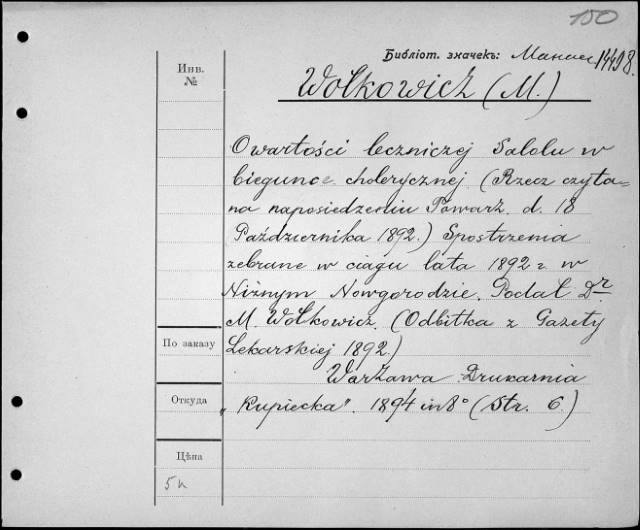 150
Библіот. значекъ: 14498
Инв.
№
Wołkowicz (M.)
O wartości leczniczej Salolu w
biegunce cholerycznej (Rzecz czyta=
na na posiedzeniu Towarz. d. 18
Października 1892.) Spostrzenia
zebrane w ciagu lata 1892 r. w
Niżnym Nowgorodzie. Podał Dr.
M. Wołkowicz. (Odbitka z Gazety
По заказу
Lekarskiej 1892.)
Warszawa Drukarnia
Откуда
„Kupiecka". 1894 in 8° (Str. 6.)
Цѣна
5 к